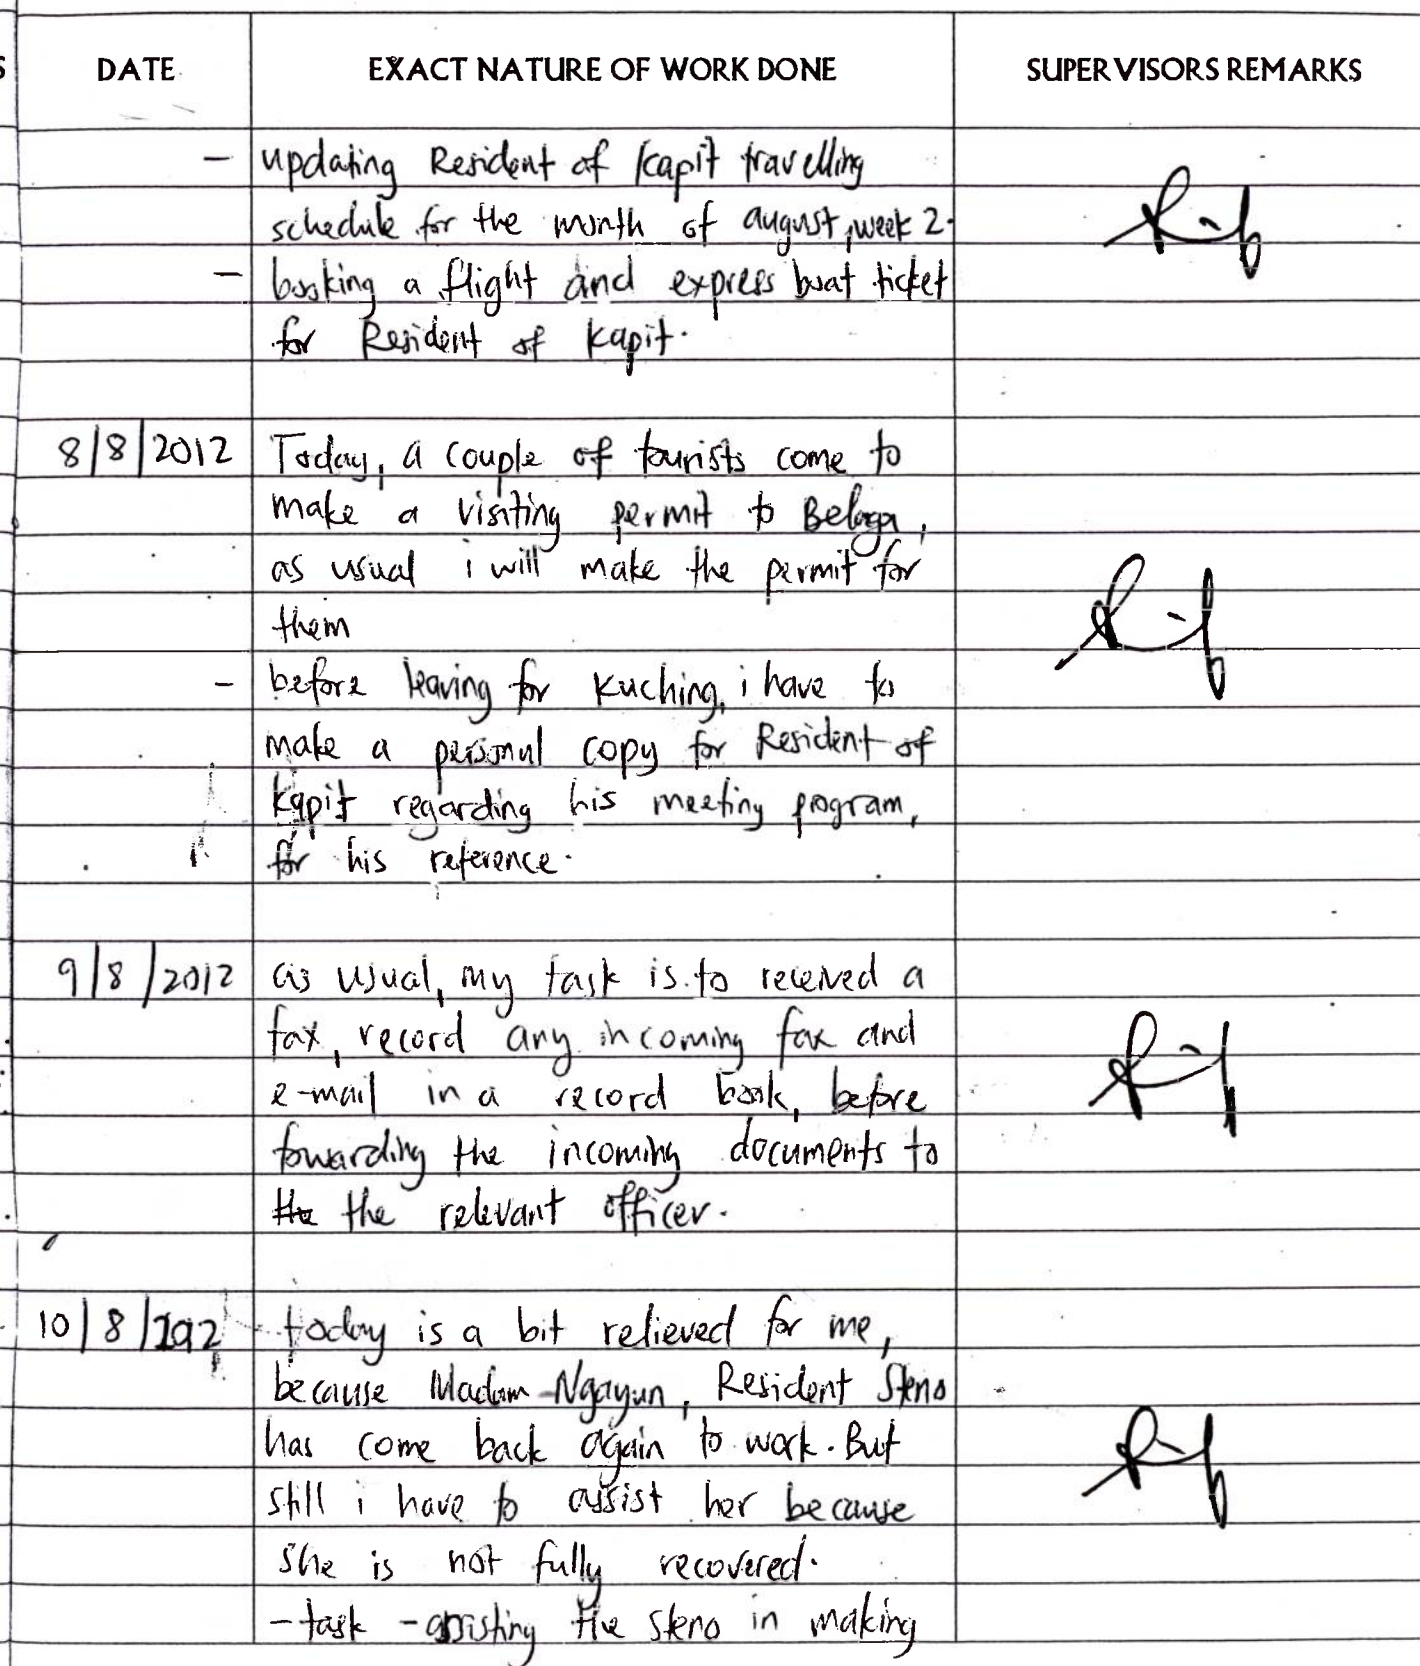 DATE EXACT NATURE OF WORK DONE SUPERVISORS REMARKS
- updating Resident of Kapit travelling
schedule for the month of august, week 2.
- booking a flight and express boat ticket
for Resident of Kapit.
8/8/2012 Today, a couple of tourists come to
make a visiting permit to Belaga,
as usual i will make the permit for
them
- before leaving for Kuching, i have to
make a personal copy for Resident of
Kapit regarding his meeting program,
for his reference.
9/8/2012 as usual, my task is to received a
fax, record any incoming fax and
e-mail in a record book, before
fowarding the incoming documents to
the the relevant officer.
10/8/ today is a bit relieved for me,
because Madam Ngayun, Resident Steno
has come back again to work. But
still i have to assist her because
she is not fully recovered.
- task - assisting the steno in making